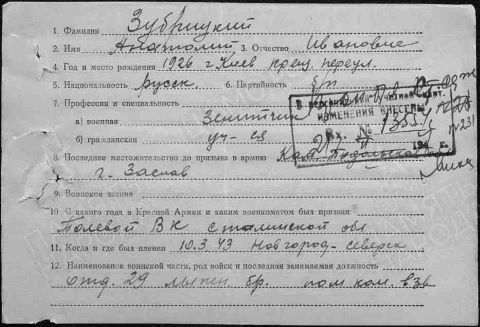 1. Фамилия Зубрицкий
2. Имя Анатолий 3. Отчество Иванович
4. Год и место рождения 1926 г. Киев
5. Национальность русск. 6. Партийность б/п
7. Профессия и специальность
а) военная Зенитчик
б) гражданская уч-ся
ИЗМЕНЕНИЯ ВНЕСЕНЫ
Вх. №
194 г.
8 Последнее местожительство до призыва в армию
г. Заслав
9. Воинское звание
10 С какого года в Красной Армии и каким военкоматом был призван
Полевой ВК Сталинской обл
11. Когда и где был пленен 10.3.43 Новгород-Северск
12. Наименование воинской части, род войск и последняя занимаемая должность
Отд. 29 лыжн. бр. пом. ком. взв